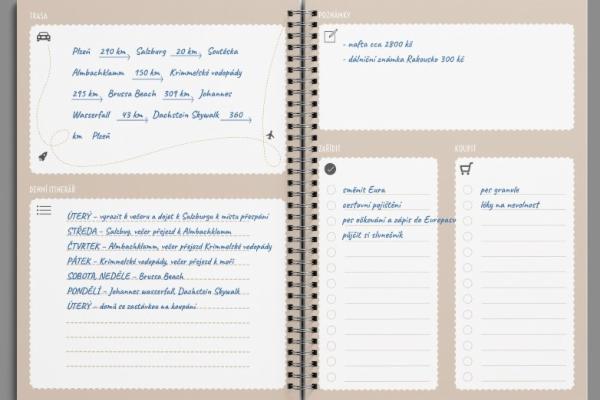 TRASA
Plzeň 290 km Salzburg 20 km Soutěska
Almbachklamm 150 km Krimmelské vodopády
295 km Brussa Beach 309 km Johannes
Wasserfall 43 km Dachstein Skywalk 360
km Plzeň
DENNÍ ITINERÁŘ
ÚTERÝ – vyrazit k večeru a dojet k Salzburgu k místu přespání
STŘEDA – Salzbug, večer přejezd k Almbachklamm
ČTVRTEK – Almbachklamm, večer přejezd Krimmelské vodopády
PÁTEK – Krimmelské vodopády, večer přejezd k moři
SOBOTA, NEDĚLE – Brussa Beach
PONDĚLÍ – Johannes wasserfall, Dachstein Skywalk
ÚTERÝ – domů se zastávkou na koupání
POZNÁMKY
- nafta cca 2800 kč
- dálniční známka Rakousko 300 kč
ZAŘÍDIT
směnit Eura
cestovní pojištění
pes očkování a zápis do Europasu
půjčit si slunečník
KOUPIT
pes granule
léky na nevolnost